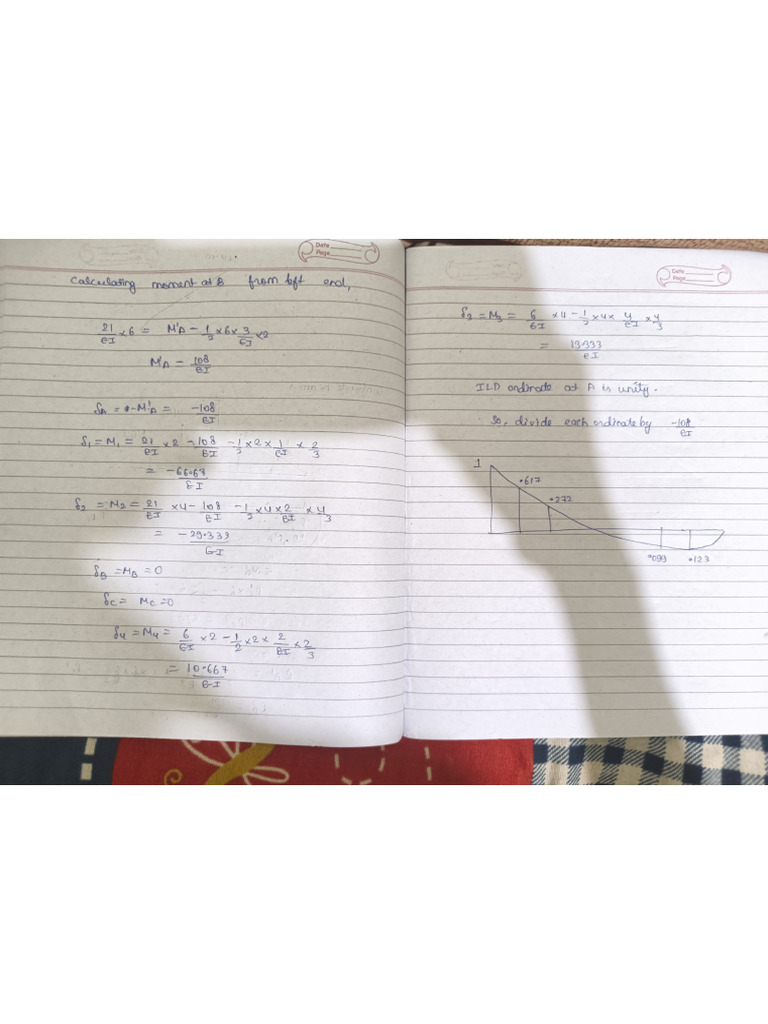 Date
Page
calculating moment at B from left end,
21/EI × 6 = M'A - 1/2 × 6 × 3/EI × 2
M'A = 108/EI
δA = - M'A = -108/EI
δ1 = M1 = 21/EI × 2 - 108/EI - 1/2 × 2 × 1/EI × 2/3
= -66.67/EI
δ2 = M2 = 21/EI × 4 - 108/EI - 1/2 × 4 × 2/EI × 4/3
= -29.333/EI
δB = MB = 0
δC = MC = 0
δ4 = M4 = 6/EI × 2 - 1/2 × 2 × 2/EI × 2/3
= 10.667/EI
Date
Page
δ2 = M3 = 6/EI × 4 - 1/2 × 4 × 4/EI × 4/3
= 13.333/EI
ILD ordinate at A is unity.
So, divide each ordinate by -108/EI
1
.617
.272
.099 .123